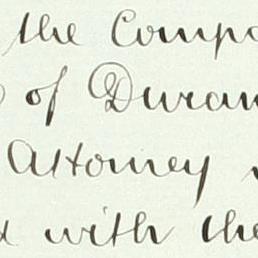 the Compa
of Duran
Attorney
with the